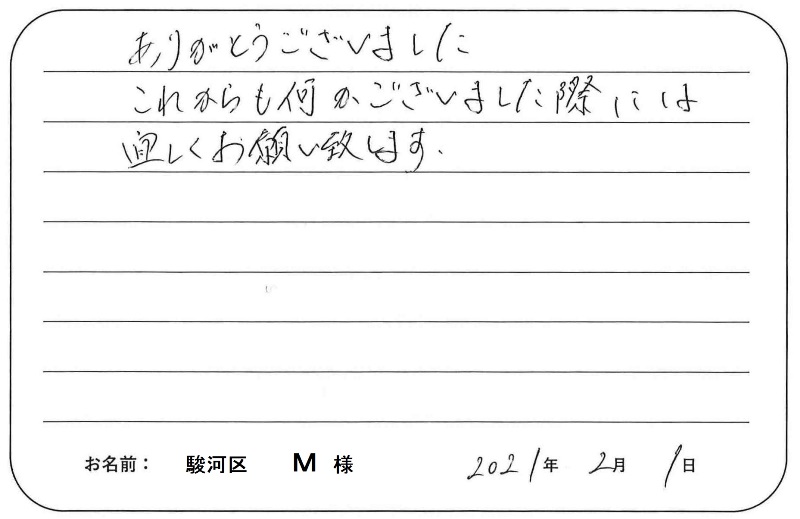 ありがとうございました
これからも何かございました際には
宜しくお願い致します.
お名前： 駿河区 M 様 2021年 2月 1日